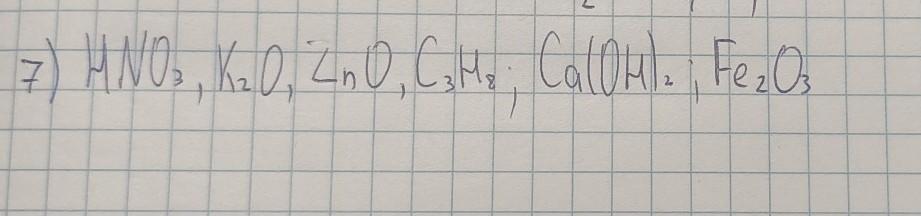 7) HNO₃, K₂O, ZnO, C₃H₈; Ca(OH)₂; Fe₂O₃